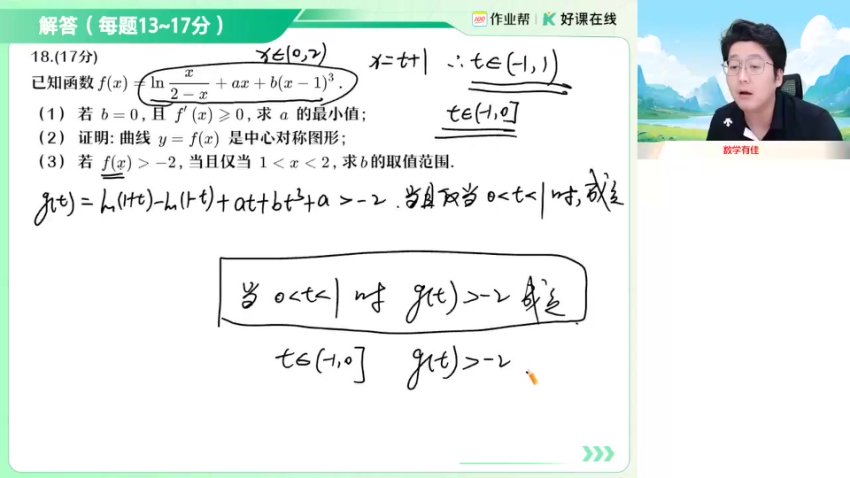 解答（每题13~17分）
作业帮 | 好课在线
18.(17分)
x∈(0,2)
x=t+1 ∴t∈(-1,1)
已知函数 f(x) = ln x/(2−x) + ax + b(x−1)³.
t∈(-1,0]
（1）若 b=0, 且 f′(x)⩾0, 求 a 的最小值;
（2）证明: 曲线 y=f(x) 是中心对称图形;
（3）若 f(x)>−2, 当且仅当 1<x<2, 求b的取值范围.
数学有佳
g(t)=ln(1+t)-ln(1-t)+at+bt³+a>-2.当且仅当 0<t<1时,成立
当 0<t<1 时 g(t)>-2 成立
t∈(-1,0] g(t)>-2